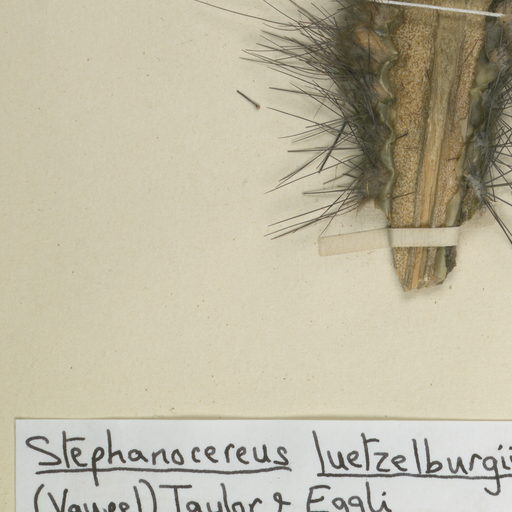 Stephanocereus luetzelburgii
(Vaupel) Taylor & Eggli